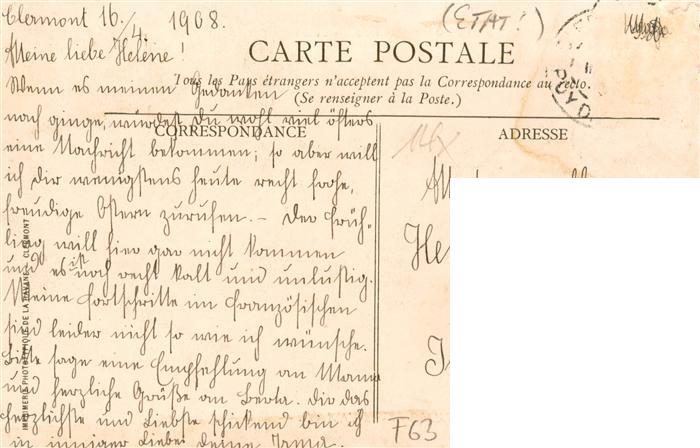 Clermont 16./4. 1908.
(ETAT!)
Meine liebe Helene!
CARTE POSTALE
Tous les Pays étrangers n'acceptent pas la Correspondance au recto.
(Se renseigner à la Poste.)
Wenn es meinen Gedanken
nach ginge, würdest Du wohl viel öfters
CORRESPONDANCE
ADRESSE
eine Nachricht bekommen; so aber will
ich dir wenigstens heute recht frohe,
freudige Ostern zurufen. – Der Früh-
ling will hier gar nicht kommen
und es ist noch recht kalt und unlustig.
Meine Fortschritte im Französischen
sind leider nicht so wie ich wünsche.
Bitte sage eine Empfehlung an Mama
und herzliche Grüße an Berta. Dir das
herzlichste und Liebste schickend bin ich
in inniger Liebe deine Irma.
IMPRIMERIE PHOTOTYPIQUE DE LA CLERMONT
PUY-D
14x
He
F63